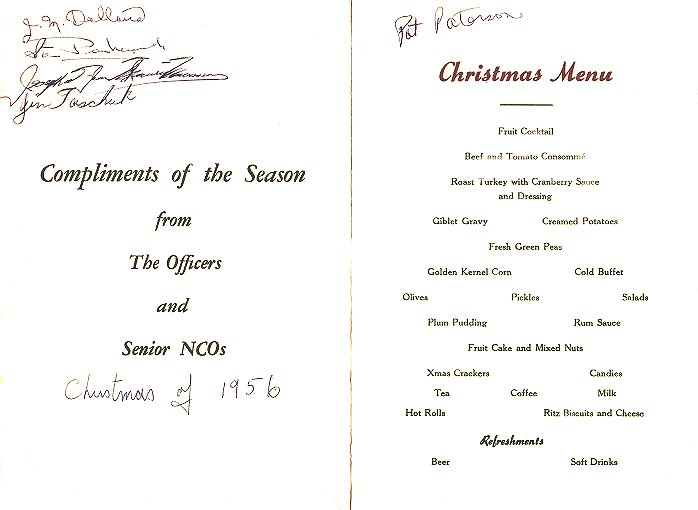 J. M. Dolland
Jim Taschuk
Compliments of the Season
from
The Officers
and
Senior NCOs
Christmas of 1956
Pat Paterson
Christmas Menu
Fruit Cocktail
Beef and Tomato Consommé
Roast Turkey with Cranberry Sauce
and Dressing
Giblet Gravy Creamed Potatoes
Fresh Green Peas
Golden Kernel Corn Cold Buffet
Olives Pickles Salads
Plum Pudding Rum Sauce
Fruit Cake and Mixed Nuts
Xmas Crackers Candies
Tea Coffee Milk
Hot Rolls Ritz Biscuits and Cheese
Refreshments
Beer Soft Drinks